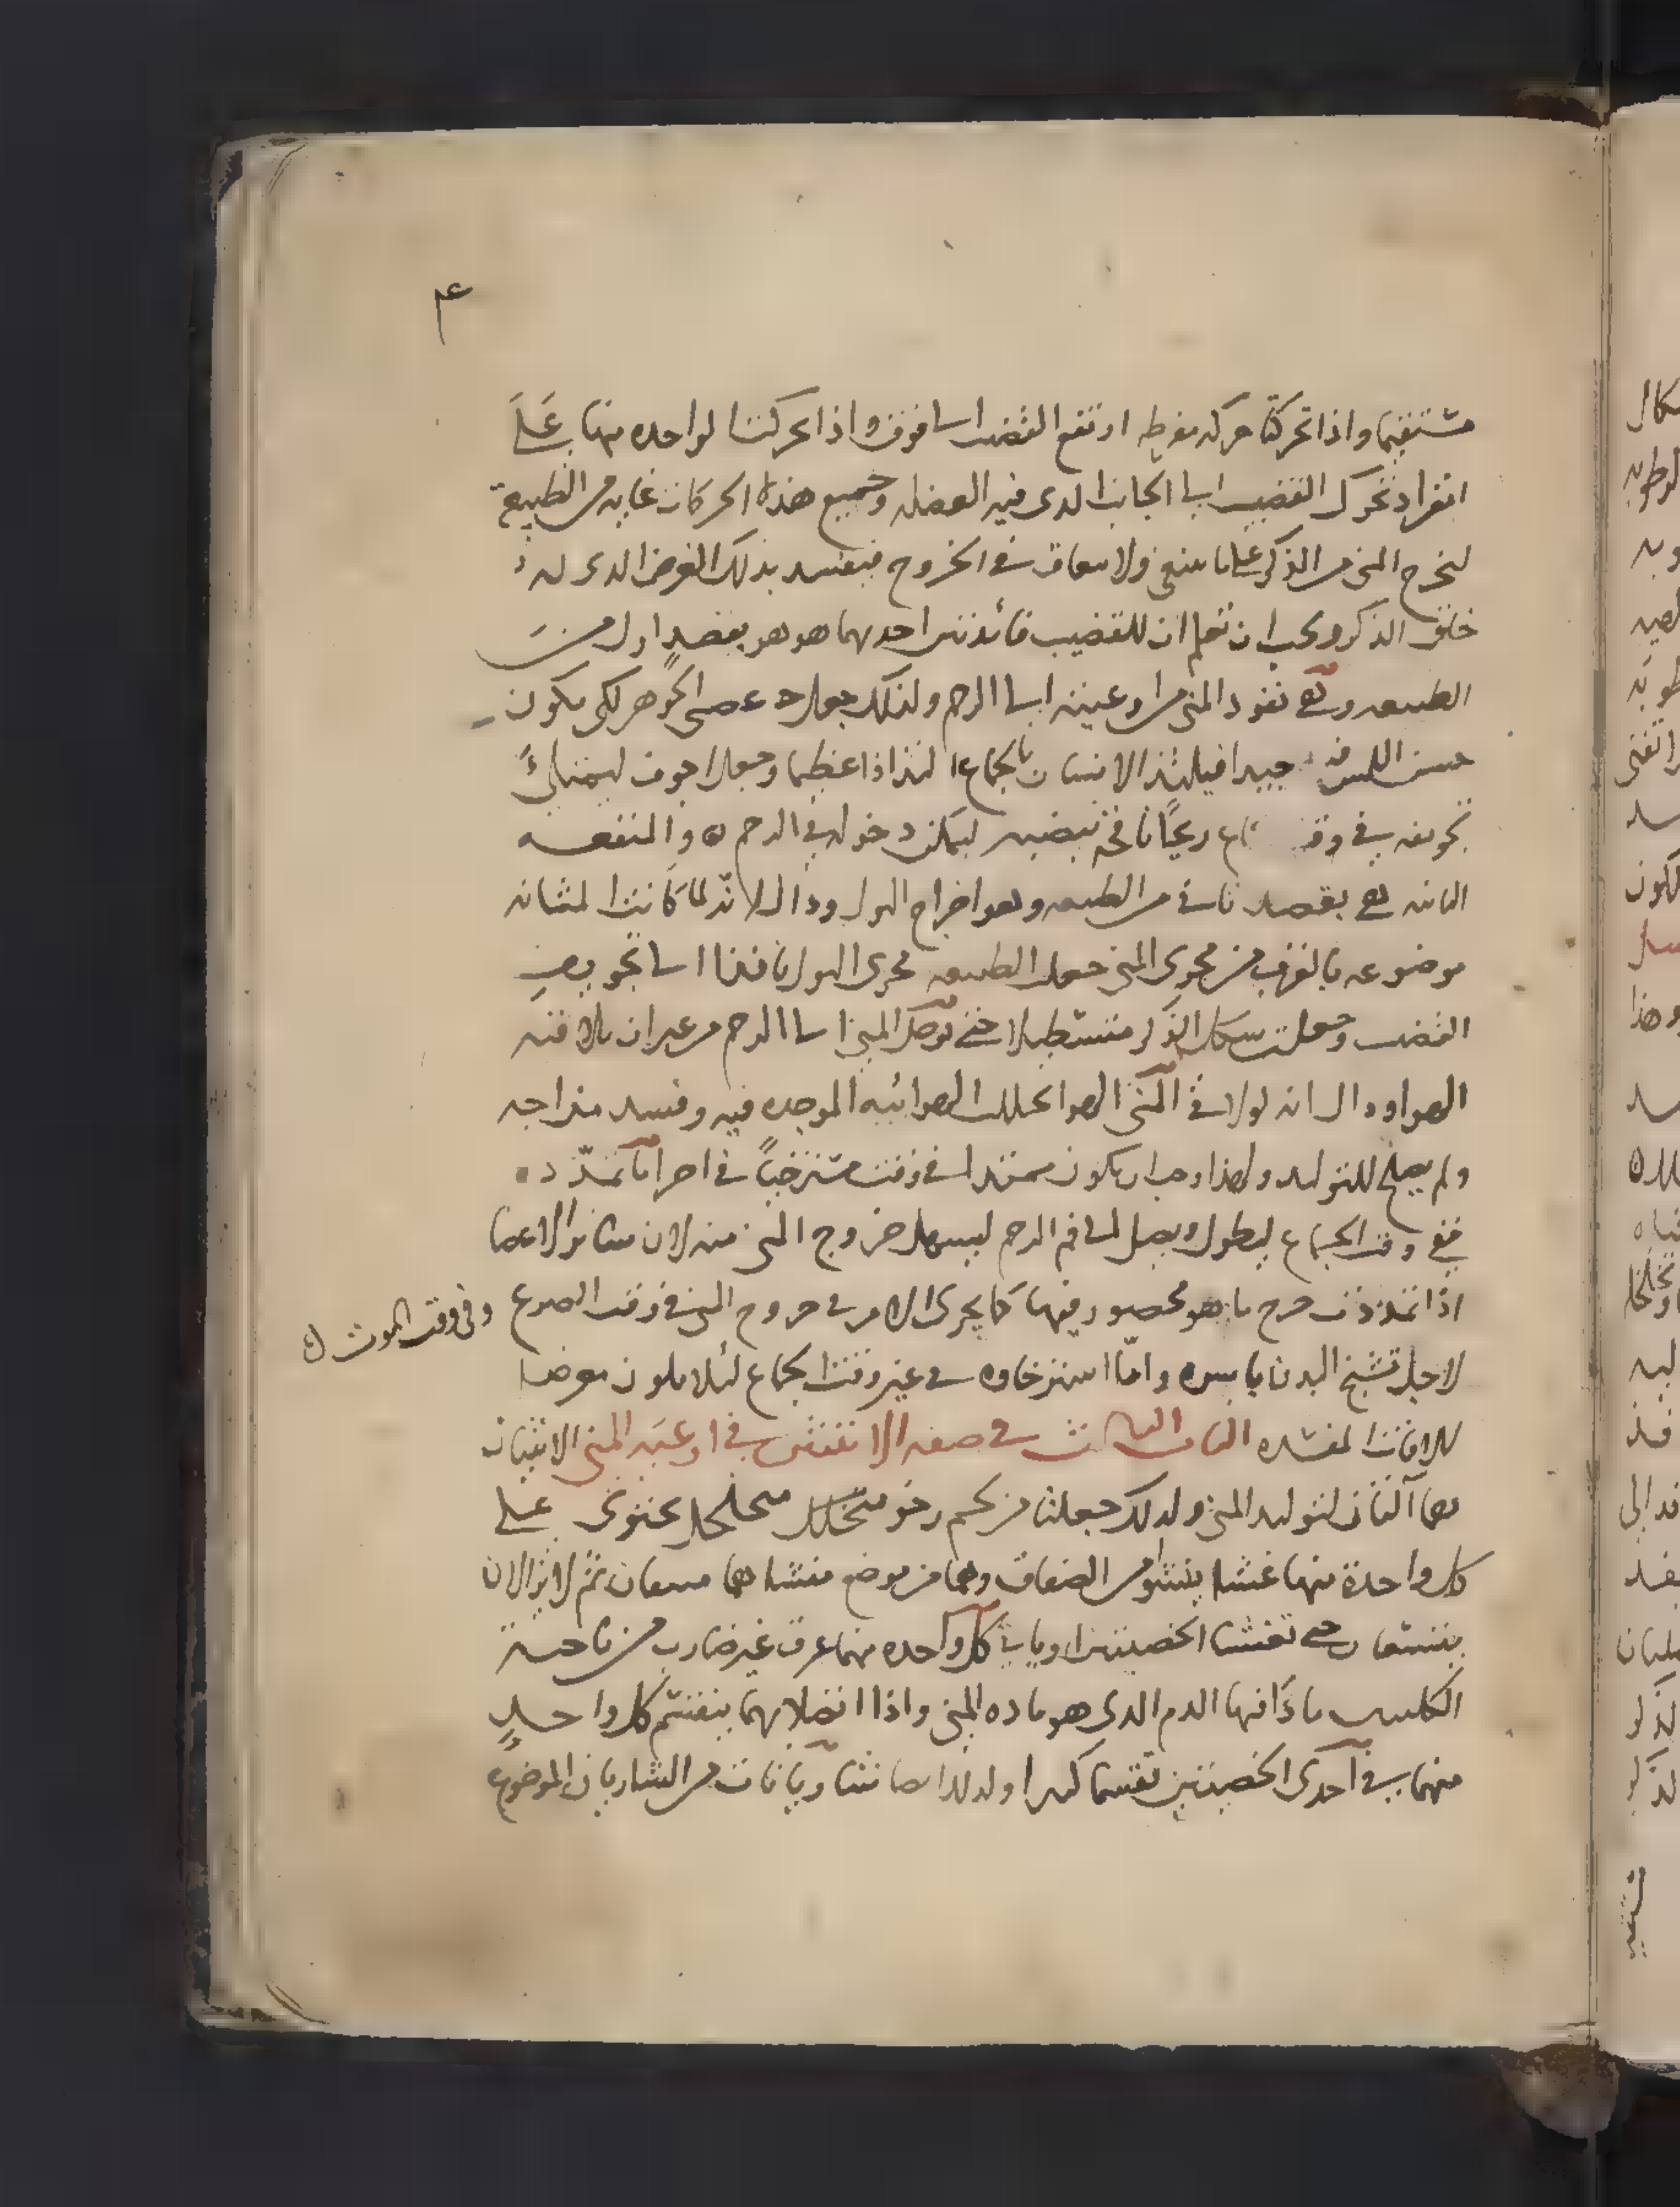 ٤
مستقيما واذا تحركتا حركه مفرطه ارتفع القضيب الى فوق واذا تحركت الواحده منها على
انفراد تحرك القضيب الى الجانب الدى فيه العضله وجميع هذه الحركات غايه من الطبيعة
ليخرج المنى من الذكر على ما ينبغى ولا يعاق فى الخروج فيفسد بذلك الغرض الدى له
خلق الذكر ويجب ان تعلم ان للقضيب فائدتين احديهما هو هو بقصد اول من
الطبيعه وهى نفود المنى من اوعيته الى الرحم ولذلك جعل عصبى الجوهر لكى يكون
حسن اللمس فيه جيدا فيلتذ الانسان بالجماع التذاذا عظيما وجعل اجوف ليمتلئ
تجويفه فى وقت ريحا نافخة تبضيب ليمكن دخوله فى الرحم ه والمنفعه
الثانيه هى بقصد ثانى من الطبيعه وهو اخراج البول وداك لانه لما كانت المثانه
موضوعه بالقرب من مجرى المنى جعلت الطبيعه مجرى البول نافذا الى تجويف
القضيب وجعلت شكل الذكر مستطيلا حتى توصل المنى الى الرحم من غير ان يلاقيه
الهوا وداك انه لو لاقى المنى الهوا تحللت الهوائيه الموجده فيه وفسد مزاجه
ولم يصلح للتوليد ولهذا وجب ان يكون متمددا فى وقت مسترخيا فى اخر اما تمدده
ففى وقت الجماع ليطول ويصل الى فم الرحم ليسهل خروج المنى منه لان سائر الاعضا
اذا تمددت خرج ما هو محصور فيها كما يجرى الامر فى خروج المنى فى وقت الصرع وفى وقت الموت ن
لاجل تشنج البدن باسره واما استرخاوه فى غير وقت الجماع لئلا يكون معرضا
للافات المفسده الباب الثالث فى صفه الانثيين فى اوعيه المنى الانثيان
هما آلتان لتوليد المنى ولدلك جعلتا من لحم رخو متخلل متخلخل يحتوى على
كل واحدة منها غشا ينشو من الصفاق وهما من موضع منشاهما ضيقان ثم لا يزالان
يتسعان حتى تغشيا الخصيتين وياتى كل واحده منهما عرق غير ضارب من ناحية
الكليتين ماذا فيها الدم الدى هو ماده المنى واذا اتصلا بهما ينقسم كل واحدٍ
منهما فى احدى الخصيتين تقسما كثيرا ولدلك ايضا شريانان من الشاريان الموضوع